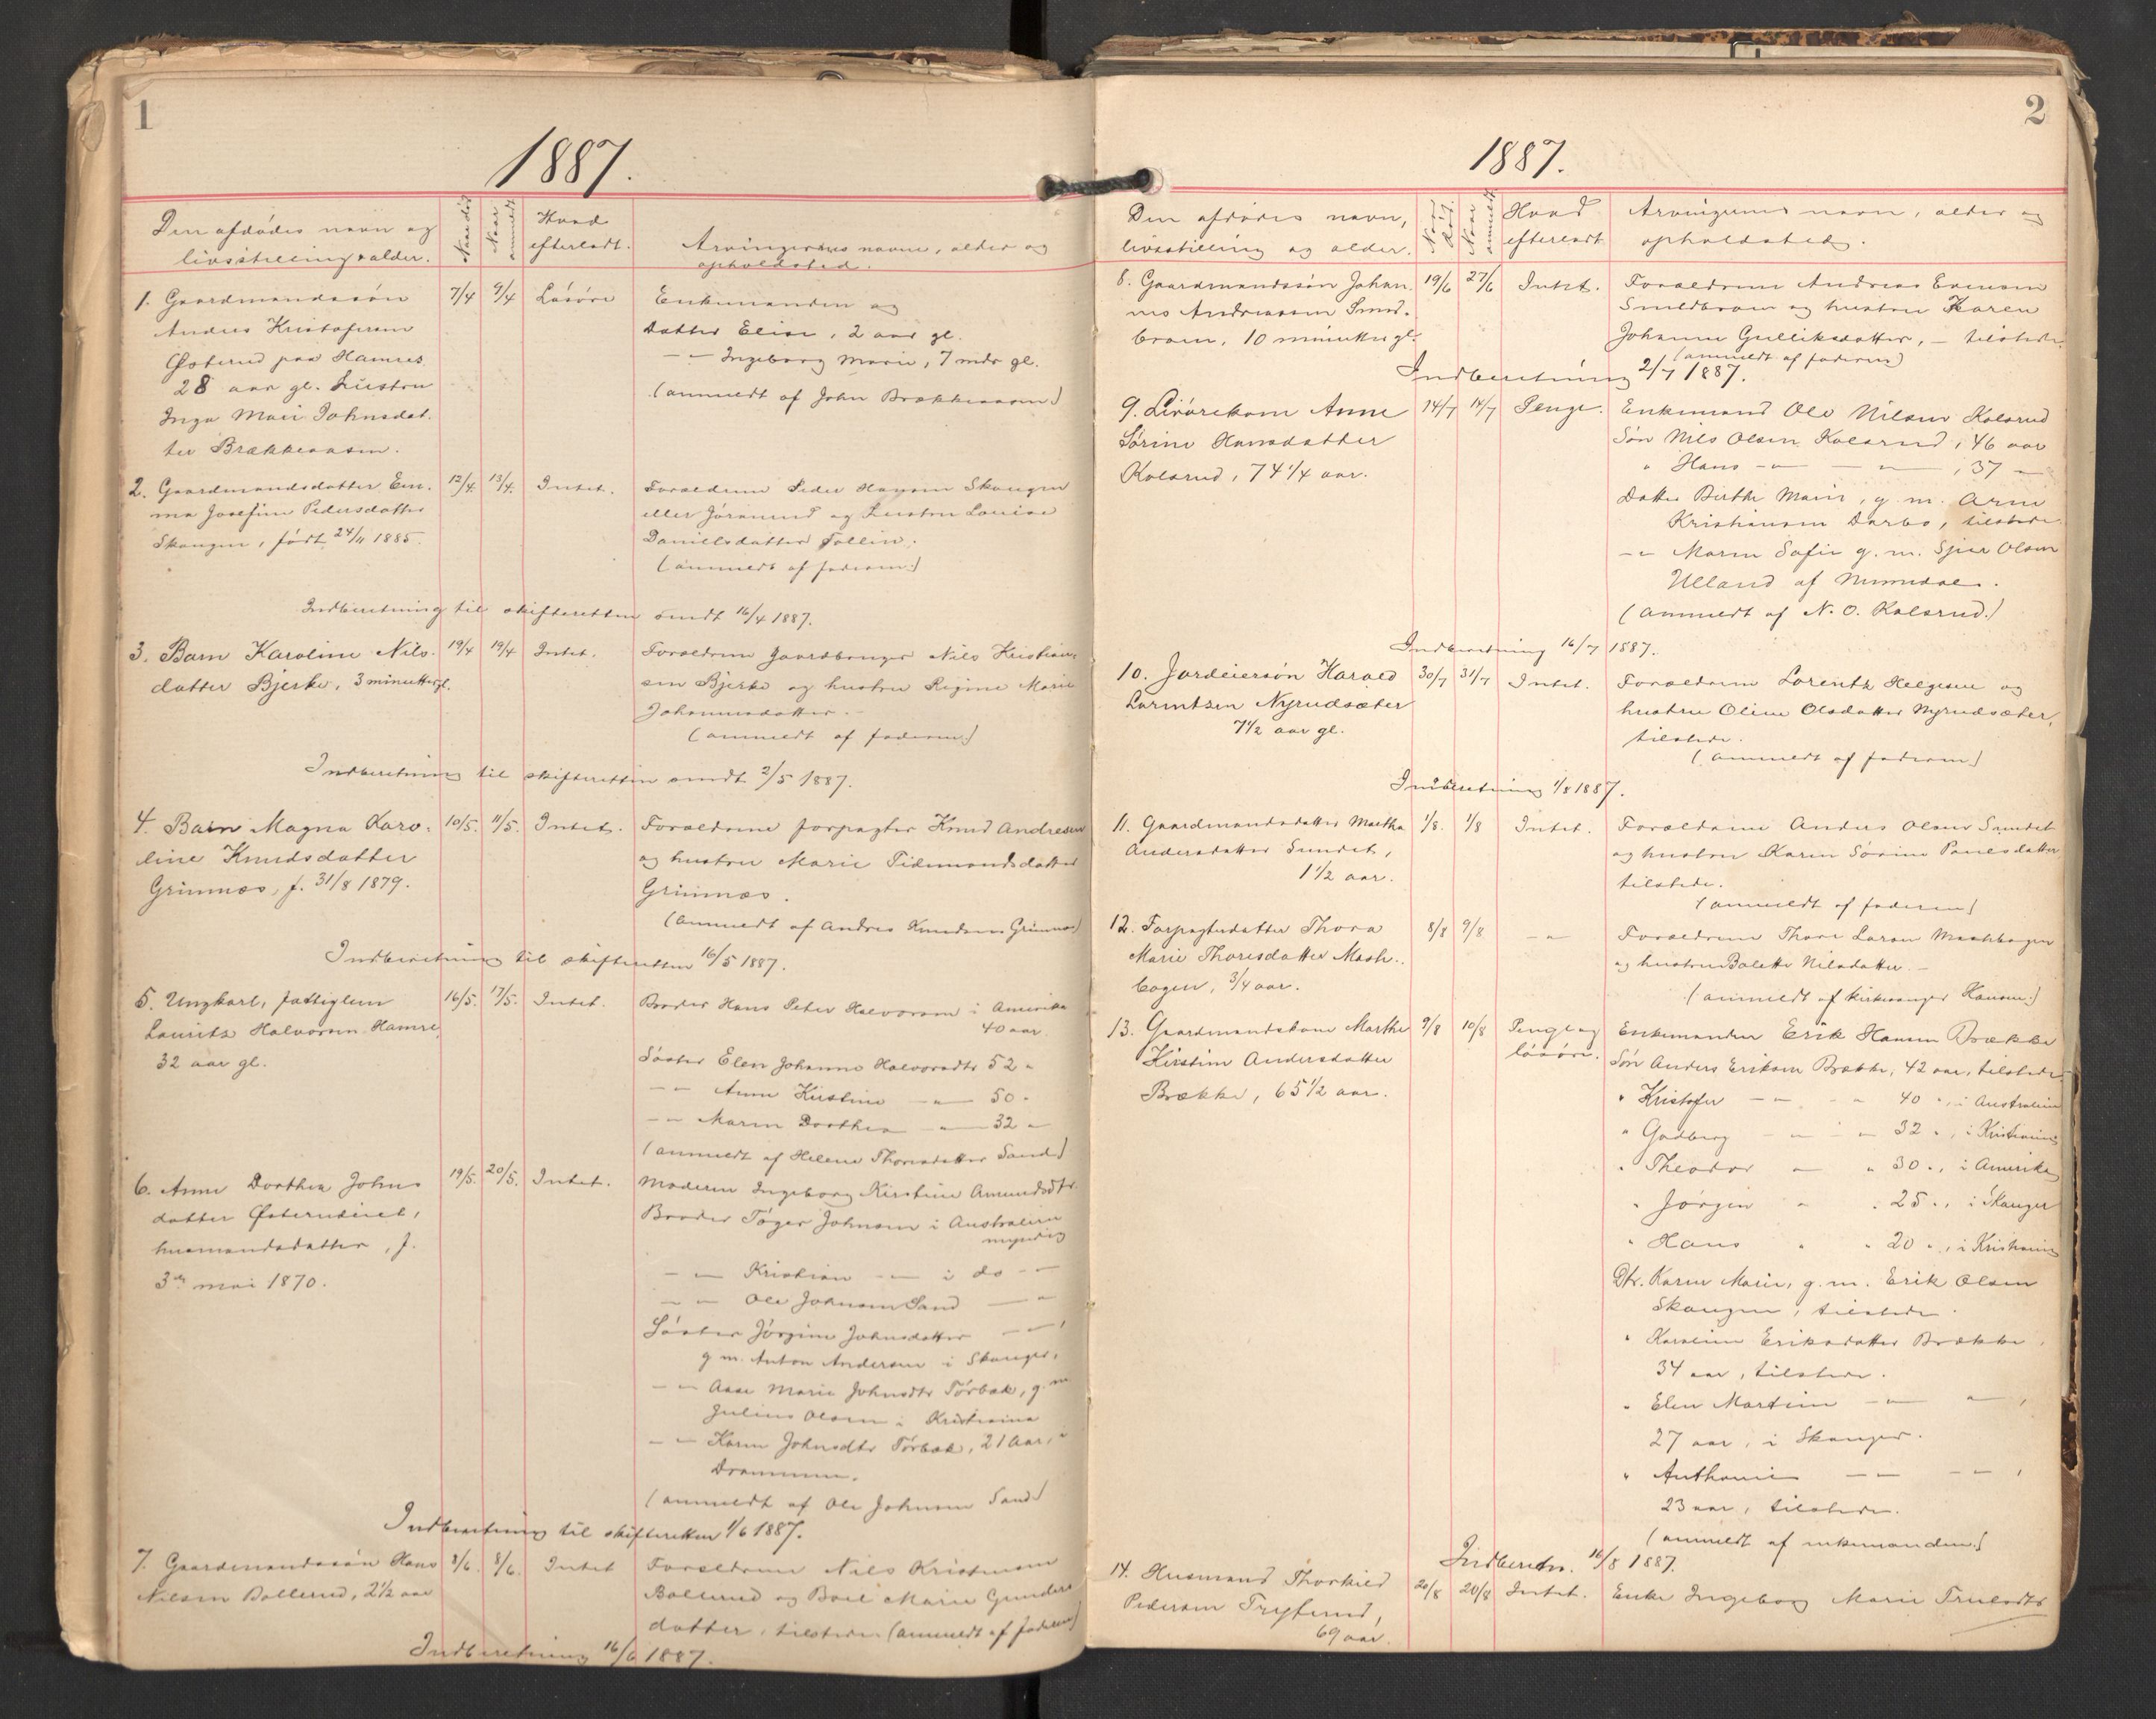 1
1887.
Den afdødes navn og
livsstilling & alder.
Naar død
Naar anmeldt
Hvad
efterladt.
Arvingernes navne, alder og
opholdsted.
1. Gaardmandssøn 7/4 9/4 Løsøre Enkemanden og
Anders Kristofersen Datter Elise, 2 aar gl.
Østerud paa Hamres -"- Ingeborg Marie, 7 mdr gl.
28 aar gl. hustru (anmeldt af John Brækkeaasen)
Inga Marie Johnsdat-
ter Brækkeaasen.
2. Gaardmandsdatter Em- 12/4. 13/4. Intet. Forældrene Peder Hansen Skaugen
ma Josefine Pedersdatter eller Jøranrud og hustru Louise
Skaugen, født 24/11 1885. Danielsdatter Follin.
(anmeldt af faderen.)
Indberetning til skifteretten sendt 16/4 1887.
3. Barn Karoline Nils- 19/4 19/4 Intet. Forældrene gaardbruger Nils Kristian-
datter Bjerke, 3 minutter gl. sen Bjerke og hustru Regine Marie
Johannesdatter.-
(anmeldt af faderen.)
Indberetning til skifteretten sendt 2/5 1887.
4. Barn Magna Karo- 10/5. 11/5. Intet. Forældrene forpagter Knud Andresen
line Knudsdatter og hustru Marie Tidemandsdatter
Grimnæs, f. 31/8 1879. Grimnæs.
(anmeldt af Andres Knudsen Grimnæs)
Indberetning til skifteretten 16/5 1887.
5. Ungkarl, fattiglem 16/5. 17/5. Intet. Broder Hans Peter Halvorsen i Amerika
Lauritz Halvorsen Hamre 40 aar.
32 aar gl. Søster Elen Johanne Halvorsdtr 52 "
-"- Anne Kirstine -"- 50 "
-"- Maren Dorthea -"- 32 "
(anmeldt af Helene Thorsdatter Sand)
6. Anne Dorthea Johns- 19/5. 20/5. Intet. Moderen Ingeborg Kirstine Amundsdtr.
datter Østerudeiet, Broder Tøger Johnsen i Australien
husmandsdatter, f. myndig
3de mai 1870. -"- Kristian -"- i do -"-
-"- Ole Johnsen Sand -"-
Søster Jørgine Johnsdatter -"-,
g. m. Anton Andersen i Skauger,
-"- Aase Marie Johnsdtr Tørbak, g. m
Julius Olsen i Kristiania
-"- Karen Johnsdtr Tørbak, 21 aar, i
Drammen.
(anmeldt af Ole Johnsen Sand)
Indberetning til skifteretten 1/6 1887.
7. Gaardmandssøn Hans 8/6. 8/6. Intet Forældrene Nils Kristensen
Nilsen Bollerud, 2½ aar Bollerud og Boel Marie Gunders-
datter, tilstede (anmeldt af faderen)
Indberetning 16/6 1887.
2
1887.
Den afdødes navn,
livsstilling og alder.
Naar død.
Naar anmeldt
Hvad
efterladt.
Arvingernes navn, alder og
opholdsted.
8. Gaardmandssøn Johan- 19/6 27/6 Intet. Forældrene Andreas Evensen
nes Andreassen Smed- Smedbraaten og hustru Karen
braaten, 10 minutter gl. Johanne Gulliksdatter, - tilstede.
(anmeldt af faderen)
Indberetning 2/7 1887.
9. Livørekone Anne 14/7 14/7 Penge. Enkemand Ole Nilsen Kolsrud
Sørine Hansdatter Søn Nils Olsen Kolsrud, 46 aar
Kolsrud, 74 1/4 aar. " Hans -"- -"-, 37 -"-
Datter Birthe Marie, g. m. Arne
Kristiansen Darbo, tilstede.
-"- Maren Sofie g. m. Sjur Olsen
Ulland af Numedal.
(anmeldt af N. O. Kolsrud.)
Indberetning 16/7 1887.
10. Jordeiersøn Harald 30/7 31/7 Intet. Forældrene Lorentz Helgesen og
Lorentzen Nyrudsæter hustru Oline Olsdatter Nyrudsæter,
7½ aar gl. tilstede.
(anmeldt af faderen)
Indberetning 1/8 1887.
11. Gaardmandsdatter Martha 1/8. 1/8 Intet. Forældrene Anders Olsen Sundet
Andersdatter Sundet, og hustru Karen Sørine Paulsdatter
1½ aar. tilstede.
(anmeldt af faderen)
12. Forpagterdatter Thora 8/8 9/8 -"- Forældrene Thore Larsen Mashbogen
Marie Thoresdatter Mash- og hustru Bolette Nilsdatter.-
bogen, 3/4 aar. (anmeldt af kirkesanger Hansen.)
13. Gaardmandskone Marthe 9/8 10/8 Penge og Enkemanden Erik Hansen Brække
Kirstine Andersdatter løsøre. Søn Anders Eriksen Brække, 42 aar, tilstede
Brække, 65½ aar. " Kristofer -"- " 40 ", i Australien
" Gudberg -"- " 32 ", i Kristiania
" Theodor " " 30 ", i Amerika
" Jørgen " " 25 ", i Skauger
" Hans " " 20 ", i Kristiania
Dtr. Karen Marie, g. m. Erik Olsen
Skaugen, tilstede.
" Karoline Eriksdatter Brække,
34 aar, tilstede.
" Elen Martine -"- ",
27 aar, i Skauger.
" Anthonie -"- -"-,
23 aar, tilstede.
(anmeldt af enkemanden.)
Indberetn. 16/8 1887.
14. Husmand Thorkild 20/8 20/8 Intet. Enke Ingeborg Marie Trulsdtr
Pedersen Tryterud,
69 aar.